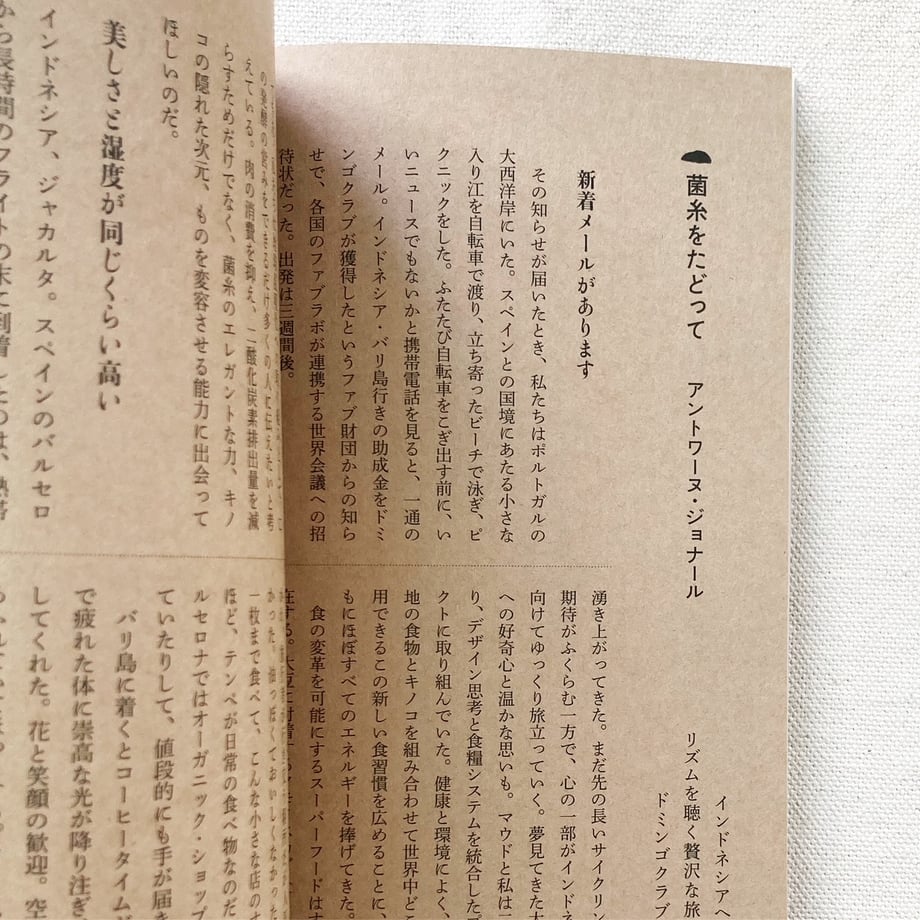 菌糸をたどって　アントワーヌ・ジョナール
インドネシアへ
リズムを聴く贅沢な旅
ドミンゴクラブ
新着メールがあります
その知らせが届いたとき、私たちはポルトガルの
大西洋岸にいた。スペインとの国境にあたる小さな
入り江を自転車で渡り、立ち寄ったビーチで泳ぎ、ピ
クニックをした。ふたたび自転車をこぎ出す前に、い
いニュースでもないかと携帯電話を見ると、一通の
メール。インドネシア・バリ島行きの助成金をドミ
ンゴクラブが獲得したというファブ財団からの知ら
せで、各国のファブラボが連携する世界会議への招
待状だった。出発は三週間後。
湧き上がってきた。まだ先の長いサイクリン
期待がふくらむ一方で、心の一部がインドネ
向けてゆっくり旅立っていく。夢見てきた大
への好奇心と温かな思いも。マウドと私は二
り、デザイン思考と食糧システムを統合したプ
クトに取り組んでいた。健康と環境によく、
地の食物とキノコを組み合わせて世界中どこ
用できるこの新しい食習慣を広めることに、
もにほぼすべてのエネルギーを捧げてきた。
食の変革を可能にするスーパーフードはす
在する。大豆に付着
の発酵の営みをできるだけ多くの人に伝えたいと考
えている。肉の消費を抑え、二酸化炭素排出量を減
らすためだけでなく、菌糸のエレガントな力、キノ
コの隠れた次元、ものを変容させる能力に出会って
ほしいのだ。
美しさと湿度が同じくらい高い
インドネシア、ジャカルタ。スペインのバルセロ
から長時間のフライトの末に到着したのは、熱帯
かった。油っぽくておいしくなかった
一枚まで食べて、こんな小さな店のす
ほど、テンペが日常の食べ物なのだ
ルセロナではオーガニック・ショップ
ていたりして、値段的にも手が届き
バリ島に着くとコーヒータイムが
で疲れた体に崇高な光が降り注ぎ
してくれた。花と笑顔の歓迎。空